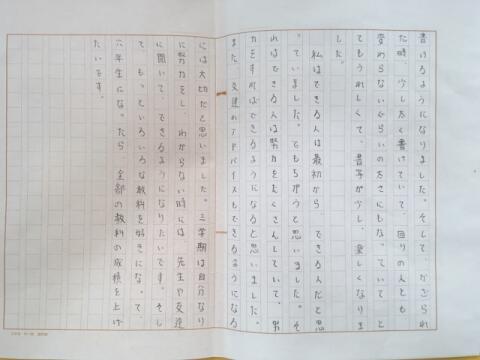 書けるようになりました。そして、かざられ
た時、少し太く書けていて、回りの人とも
変わらないぐらいの太さにもなっていてと
てもうれしくて、書写が少し、楽しくなりま
した。
私はできる人は最初から、できる人だと思
っていました。でもちがうと思いました。そ
れはできる人は努力をたくさんしていて、努
力をすればできるようになると思いました。
また、友達のアドバイスもできるようになる
には大切だと思いました。三学期は自分なり
に努力をし、わからない時には、先生や友達
に聞いて、できるようになりたいです。そし
て、もっといろいろな教科を好きになって、
六年生になったら、全部の教科の成績を上げ
たいです。